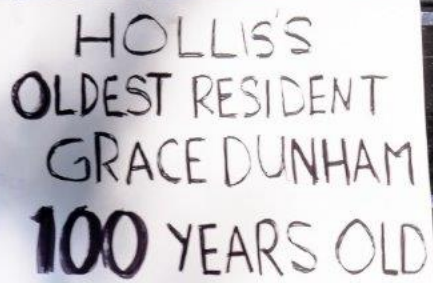 HOLLIS'S
OLDEST RESIDENT
GRACE DUNHAM
100 YEARS OLD